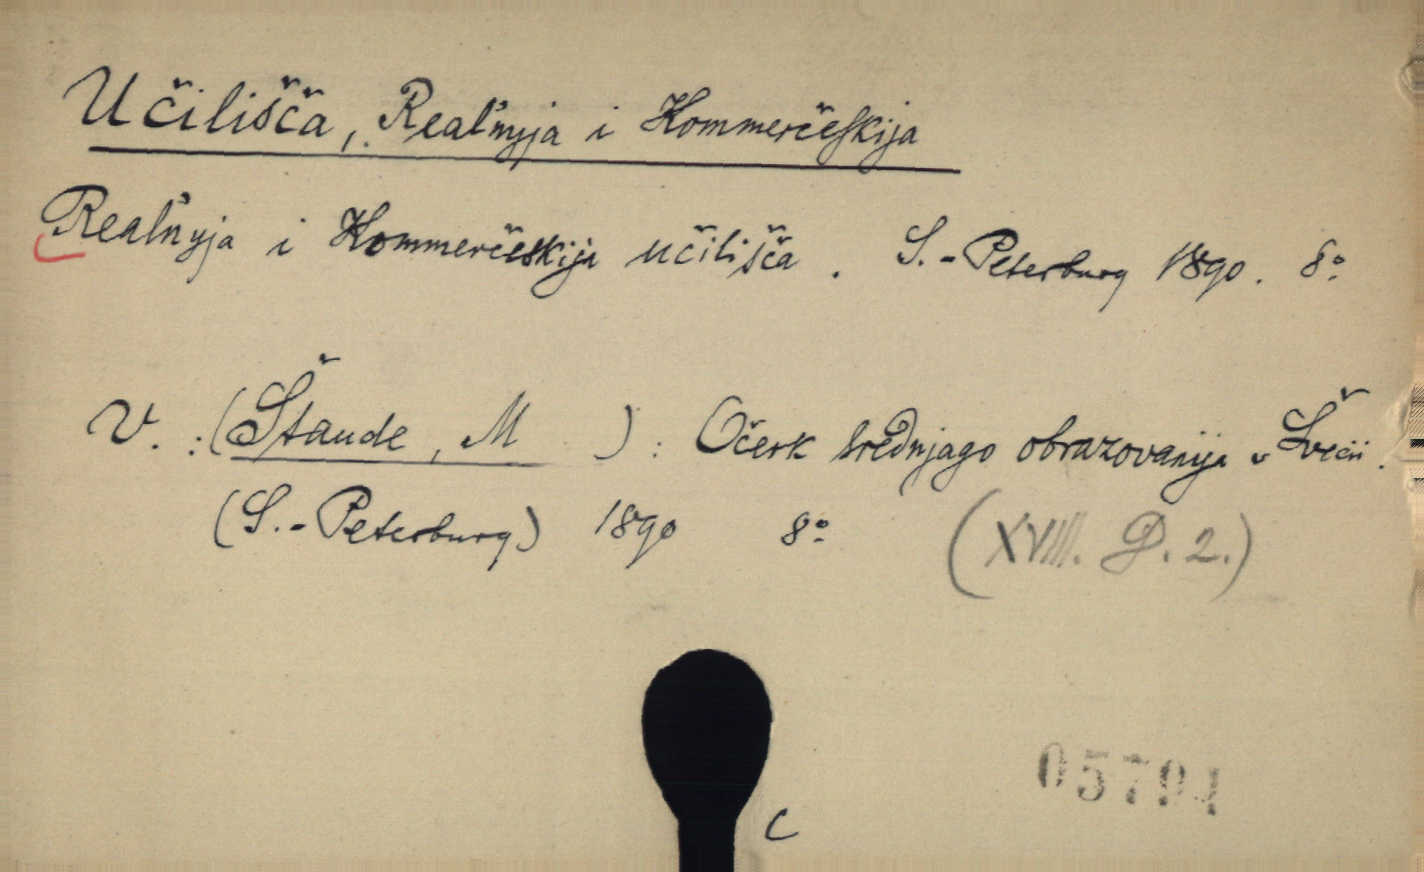 Učilišča, Real'nyja i Kommerčeskija
Real'nyja i Kommerčeskija učilišča. S.-Peterburg 1890. 8°
V.: (Štaude, M ): Očerk srednjago obrazovanija v Švecii.
(S.-Peterburg) 1890 8° (XVIII. D. 2.)
C